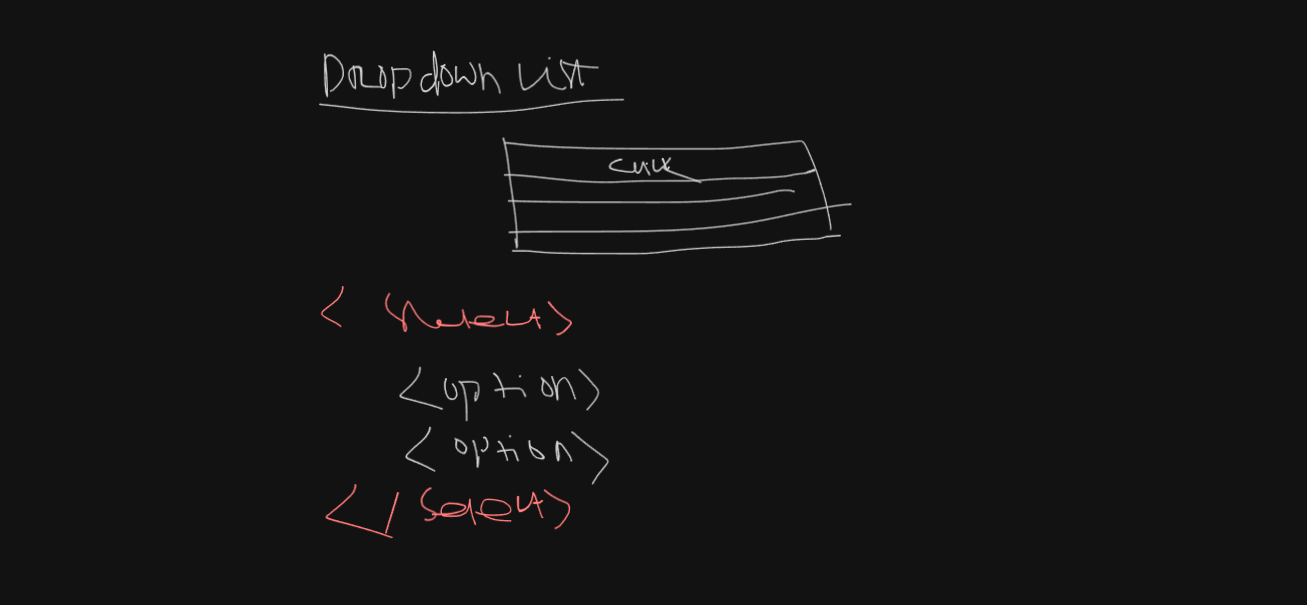 Dropdown List
Click
< Select>
<option>
<option>
</ Select>